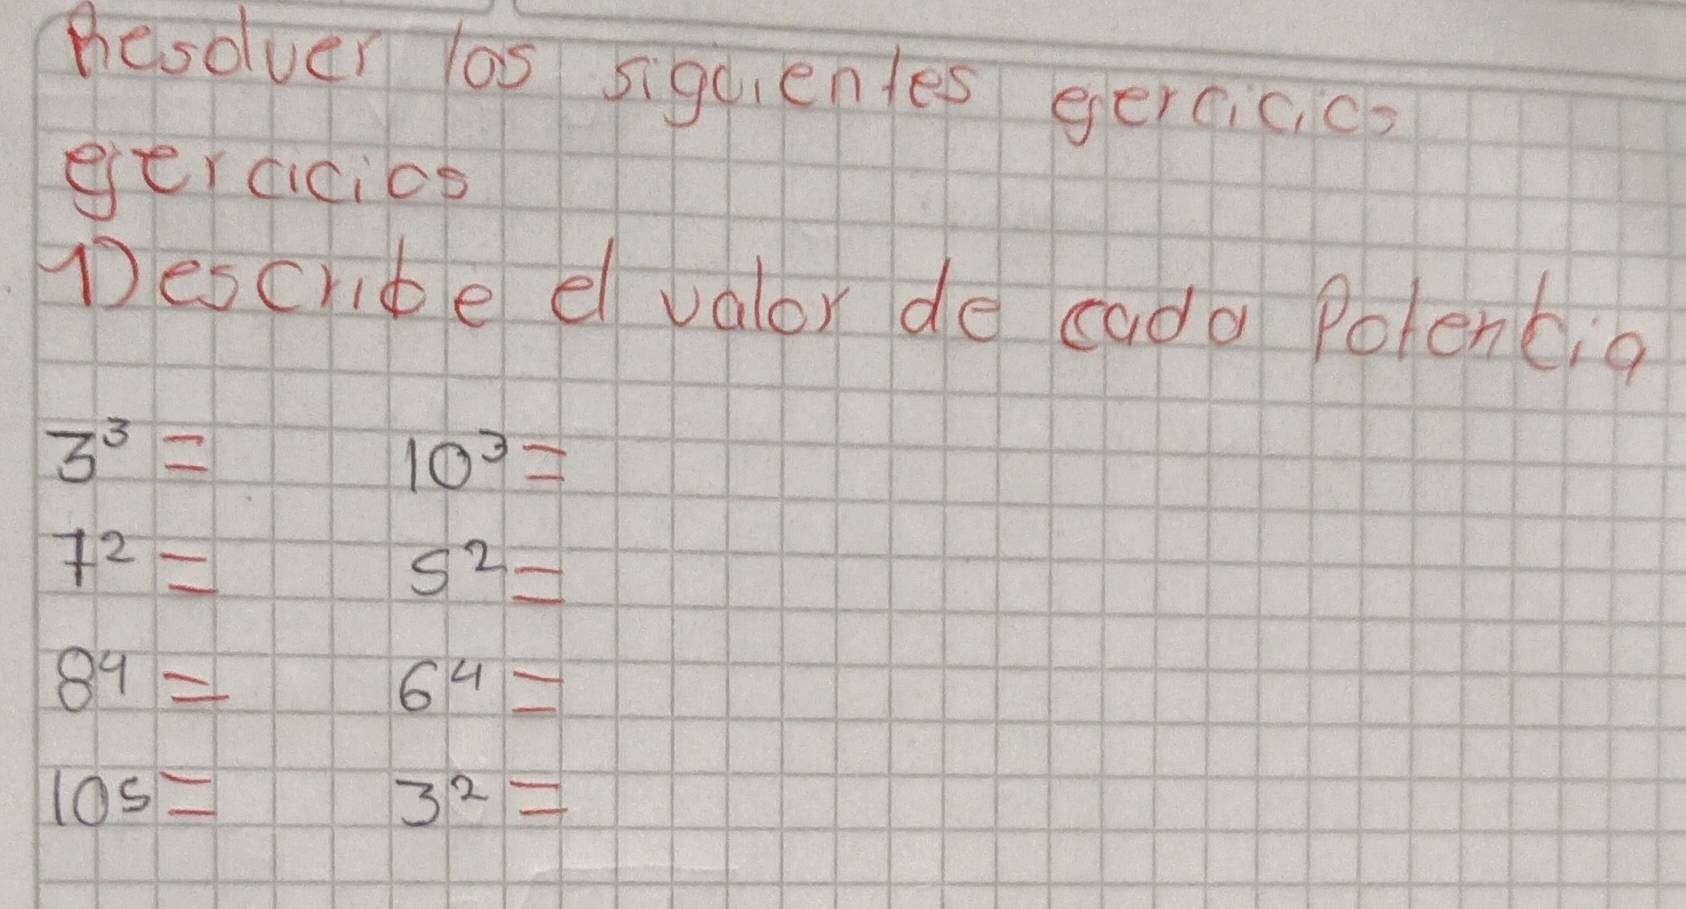 Resolver los siguientes egercicios
egercicios
1) Describe el valor de cada Potentia
3³ = 10³ =
7² = 5² =
8⁴ = 6⁴ =
10⁵ = 3² =